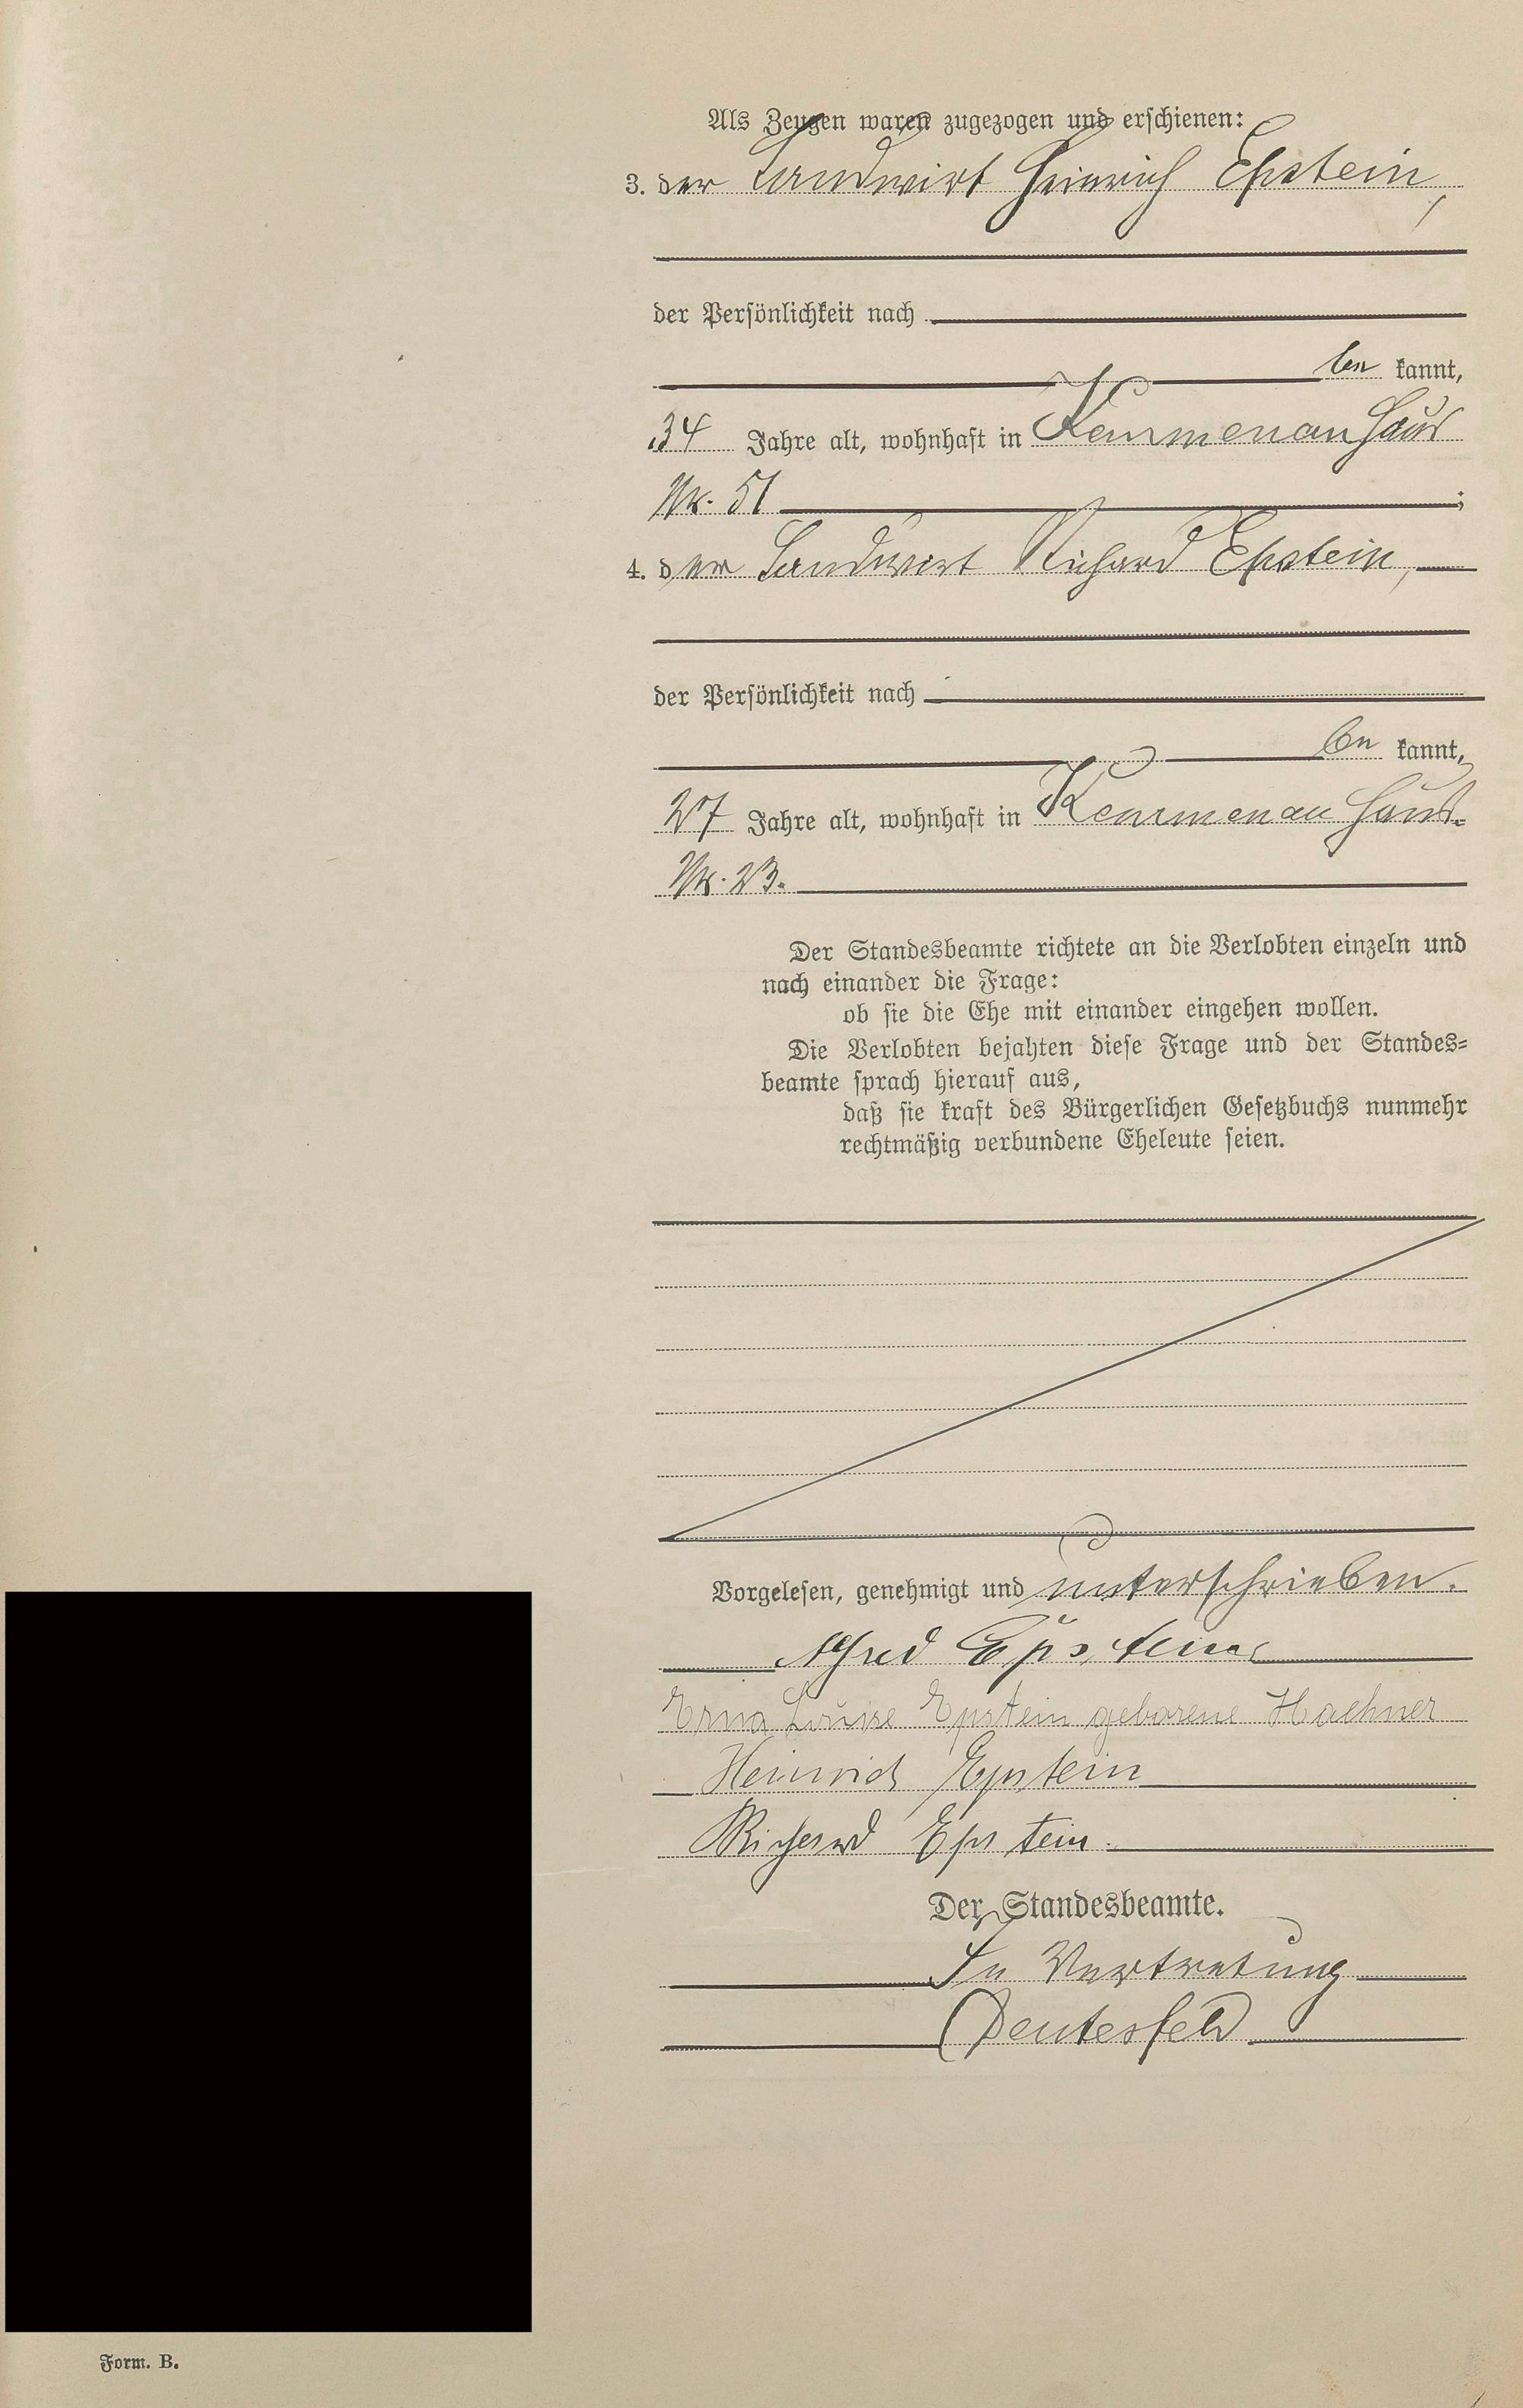 Als Zeugen waren zugezogen und erschienen:
3. der Landwirt Heinrich Epstein,
der Persönlichkeit nach
be kannt,
34 Jahre alt, wohnhaft in Kemmenau Haus
Nr. 51 ;
4. der Landwirt Richard Epstein,
der Persönlichkeit nach
be kannt,
27 Jahre alt, wohnhaft in Kemmenau Haus-
Nr. 23.
Der Standesbeamte richtete an die Verlobten einzeln und
nach einander die Frage:
ob sie die Ehe mit einander eingehen wollen.
Die Verlobten bejahten diese Frage und der Standes-
beamte sprach hierauf aus,
daß sie kraft des Bürgerlichen Gesetzbuchs nunmehr
rechtmäßig verbundene Eheleute seien.
Vorgelesen, genehmigt und unterschrieben.
Alfred Epstein
Erna Louise Epstein geborene Haehner
Heinrich Epstein
Richard Epstein.
Der Standesbeamte.
In Vertretung
Deutesfeld
Form. B.